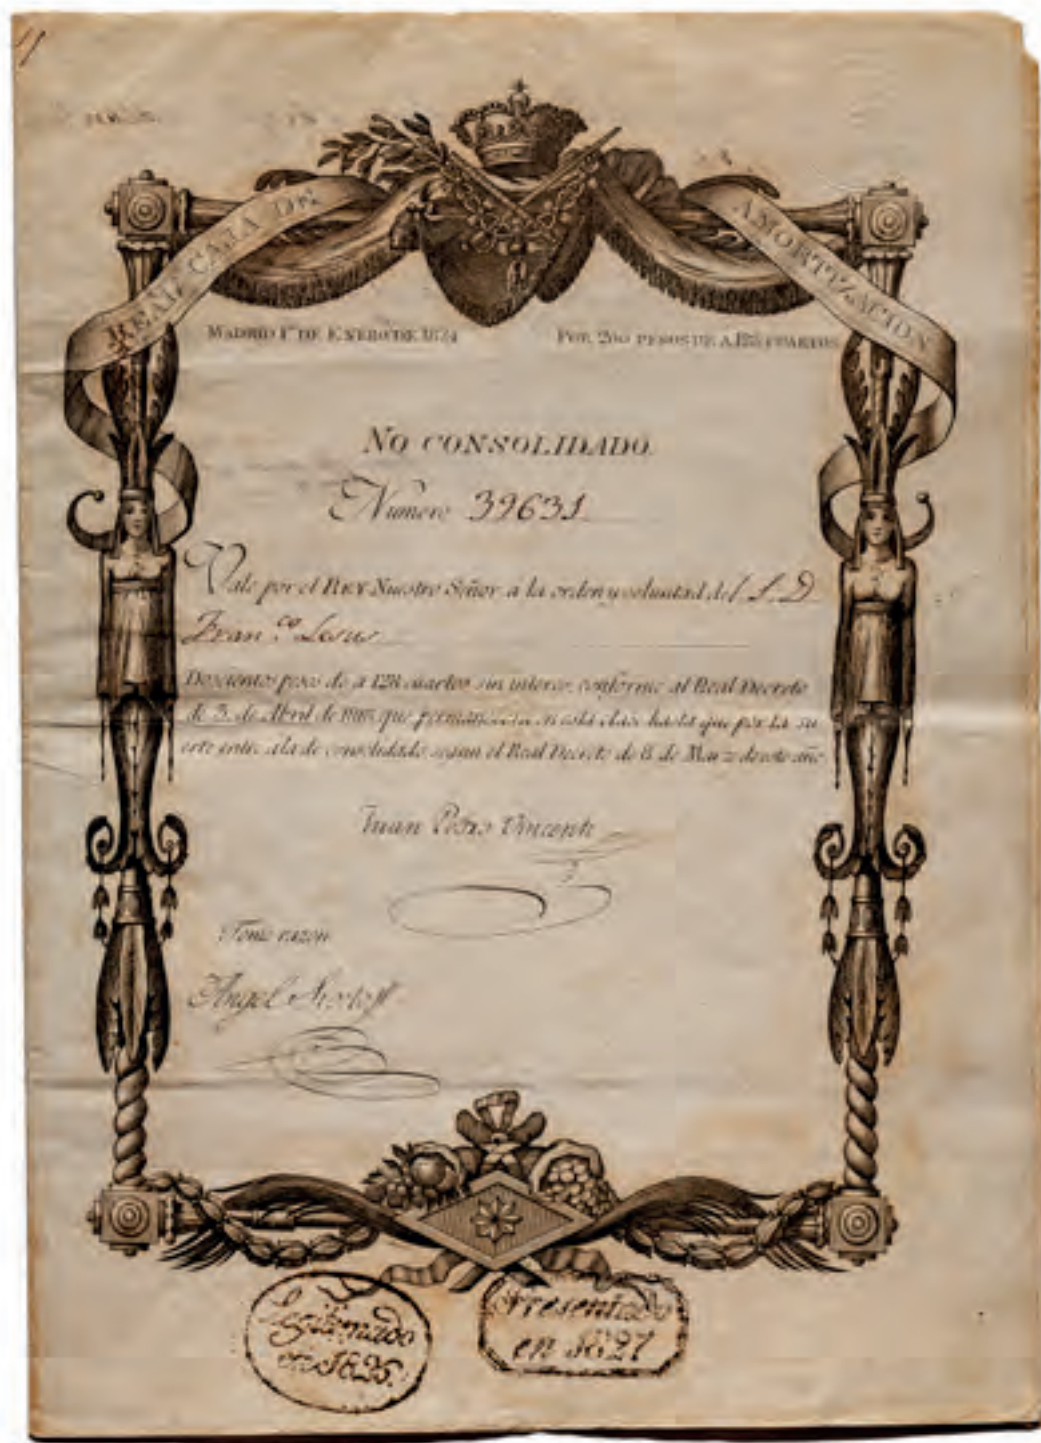 REAL CAJA DE AMORTIZACION
MADRID 1º DE ENERO DE 1824 POR 200 PESOS DE A 128 CUARTOS
NO CONSOLIDADO
Número 39631
Vale por el REY Nuestro Señor a la orden y voluntad del S. D
Fran.co
Doscientos pesos de a 128 cuartos sin interes, conforme al Real Decreto
de 3. de Abril de que permanecera en esta clase hasta que por la su
erte entre a la de consolidado segun el Real Decreto de 8 de Marzo de este año
Juan Pedro Vincenti
Tomé razon
Angel
Legitimado
en 1825.
Presentado
en 1827